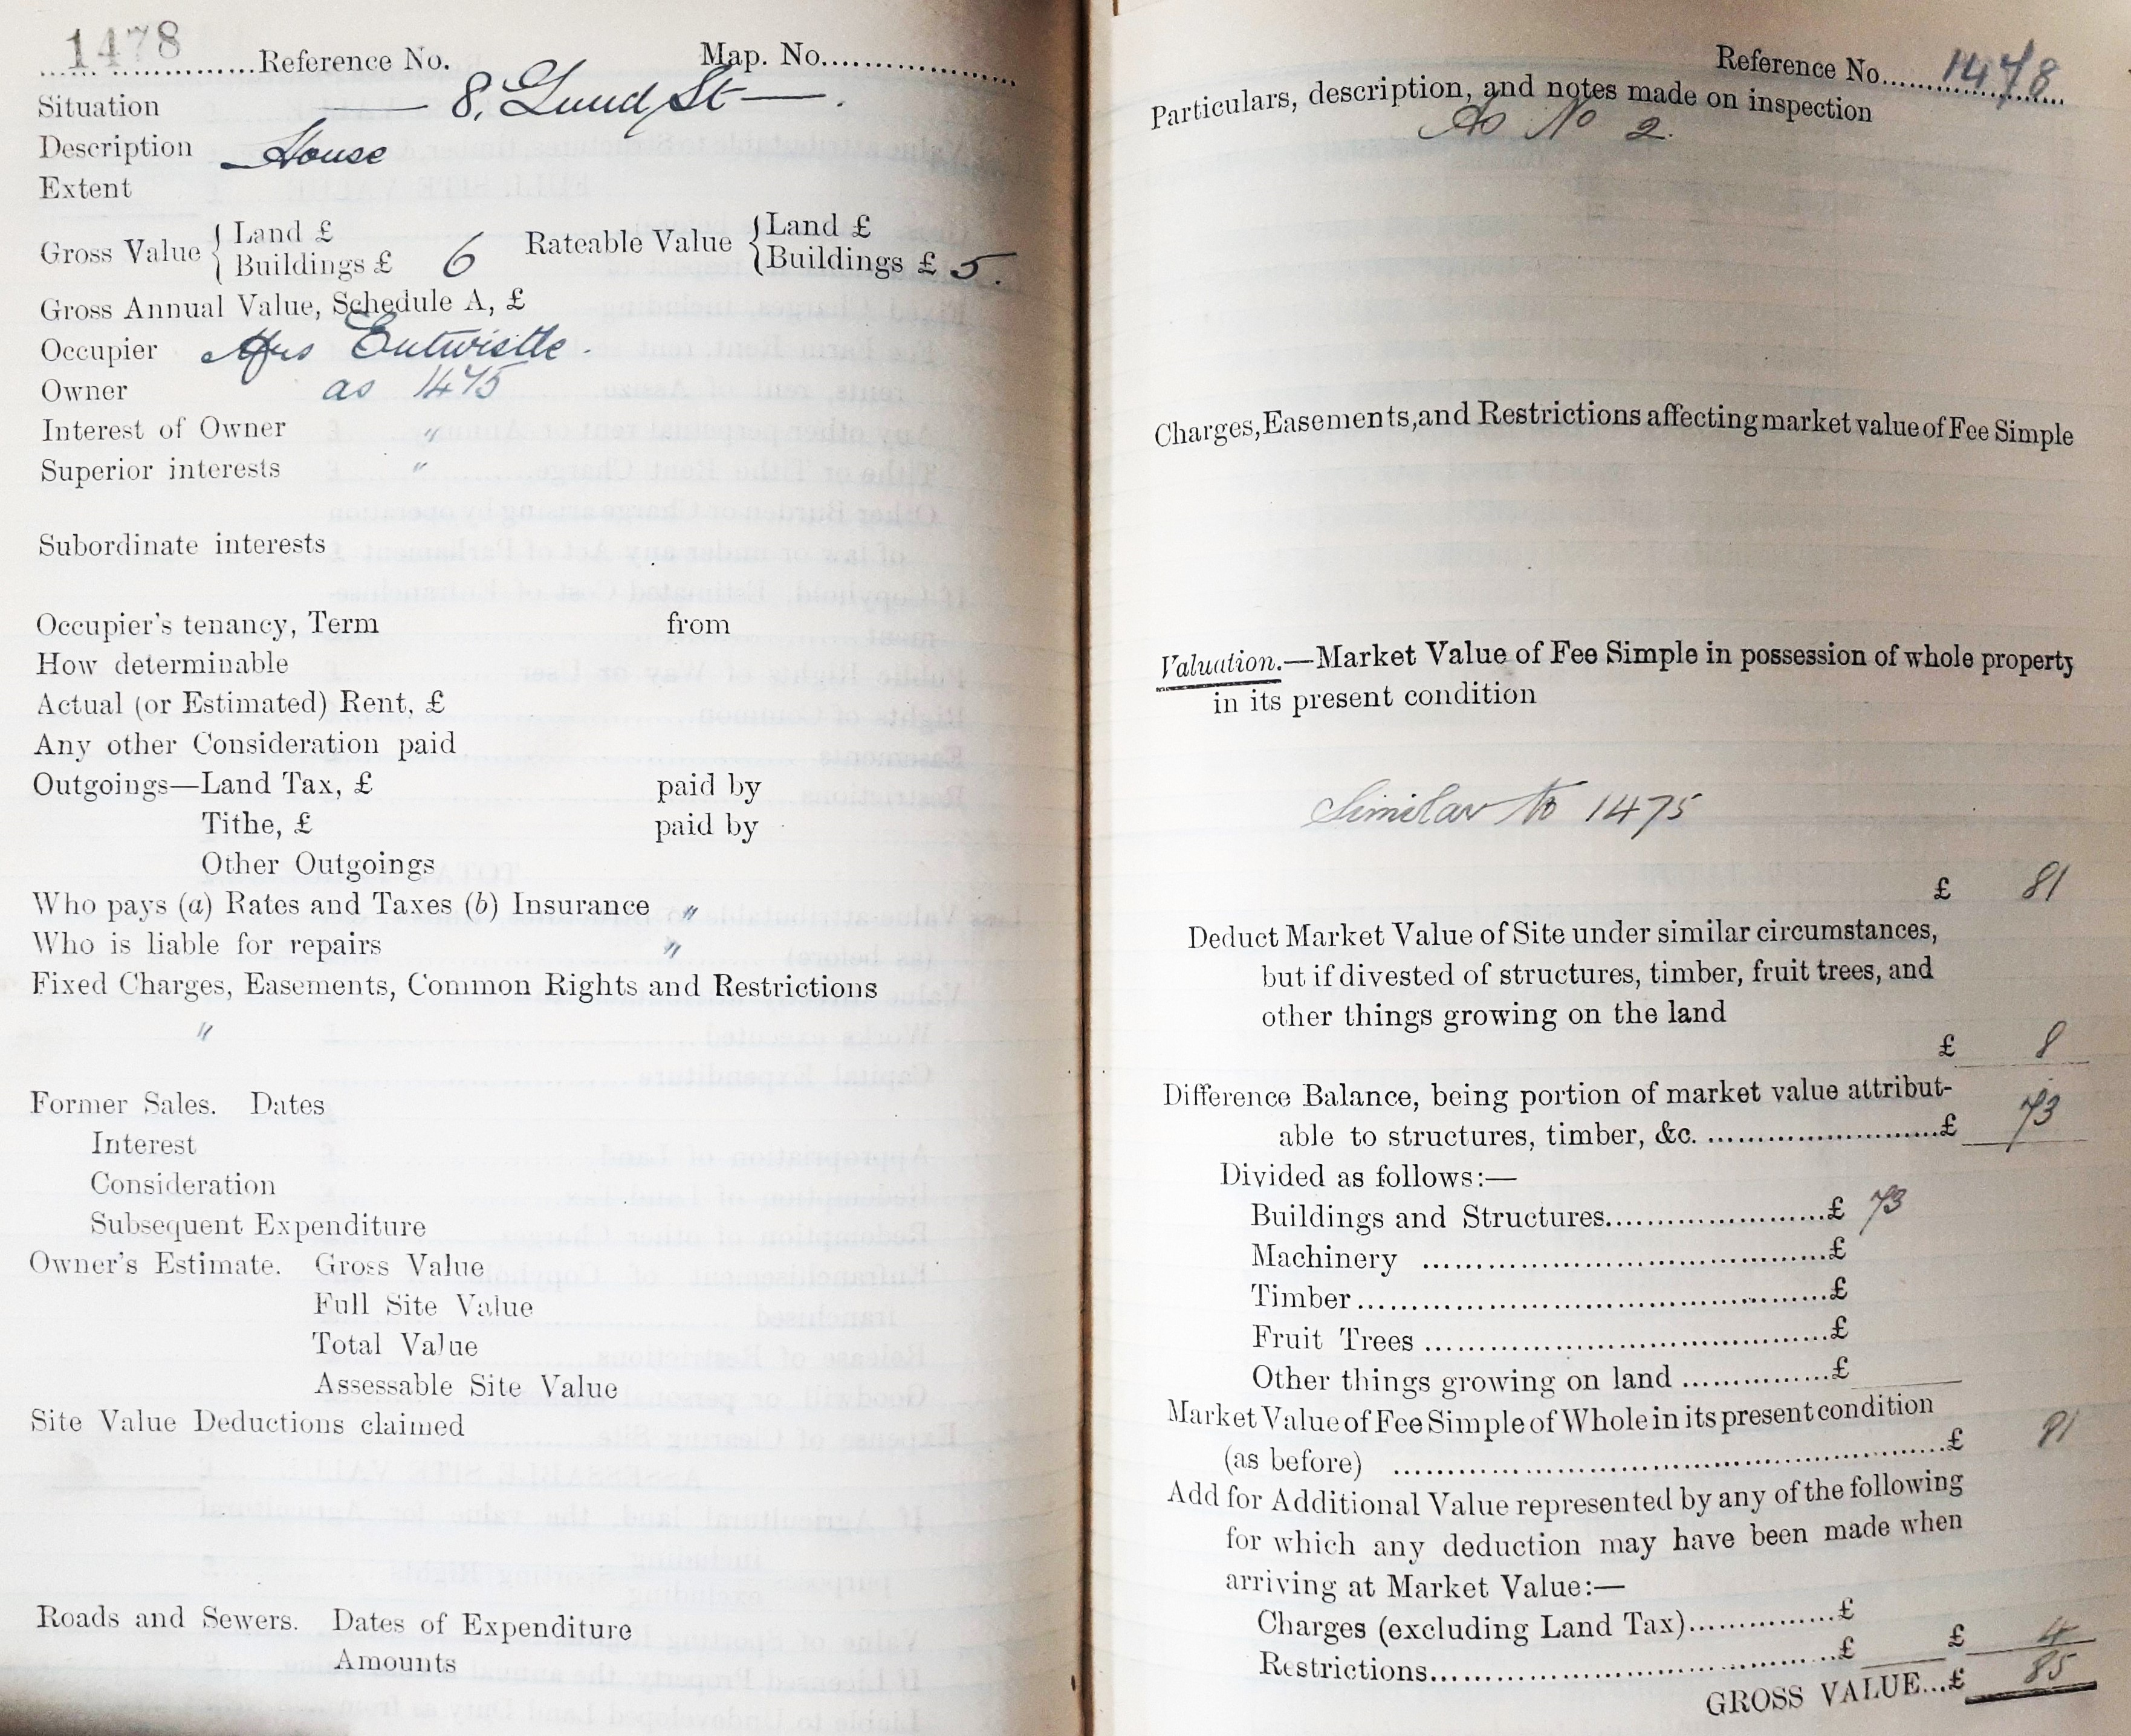 1478
Reference No. Map. No.
Situation — 8, Lund St —.
Description House
Extent
Gross Value { Land £
Buildings £ 6
Rateable Value { Land £
Buildings £ 5.
Gross Annual Value, Schedule A, £
Occupier Mrs Entwistle.
Owner as 1475
Interest of Owner "
Superior interests "
Subordinate interests
Occupier's tenancy, Term from
How determinable
Actual (or Estimated) Rent, £
Any other Consideration paid
Outgoings—Land Tax, £ paid by
Tithe, £ paid by
Other Outgoings
Who pays (a) Rates and Taxes (b) Insurance "
Who is liable for repairs "
Fixed Charges, Easements, Common Rights and Restrictions
"
Former Sales. Dates
Interest
Consideration
Subsequent Expenditure
Owner's Estimate. Gross Value
Full Site Value
Total Value
Assessable Site Value
Site Value Deductions claimed
Roads and Sewers. Dates of Expenditure
Amounts
Reference No. 1478
Particulars, description, and notes made on inspection
As No 2.
Charges, Easements, and Restrictions affecting market value of Fee Simple
Valuation.—Market Value of Fee Simple in possession of whole property
in its present condition
Similar to 1475
£ 81
Deduct Market Value of Site under similar circumstances,
but if divested of structures, timber, fruit trees, and
other things growing on the land
£ 8
Difference Balance, being portion of market value attribut-
able to structures, timber, &c. £ 73
Divided as follows:—
Buildings and Structures £ 73
Machinery £
Timber £
Fruit Trees £
Other things growing on land £
Market Value of Fee Simple of Whole in its present condition
(as before) £ 81
Add for Additional Value represented by any of the following
for which any deduction may have been made when
arriving at Market Value:—
Charges (excluding Land Tax) £
Restrictions £ £ 4
GROSS VALUE...£ 85